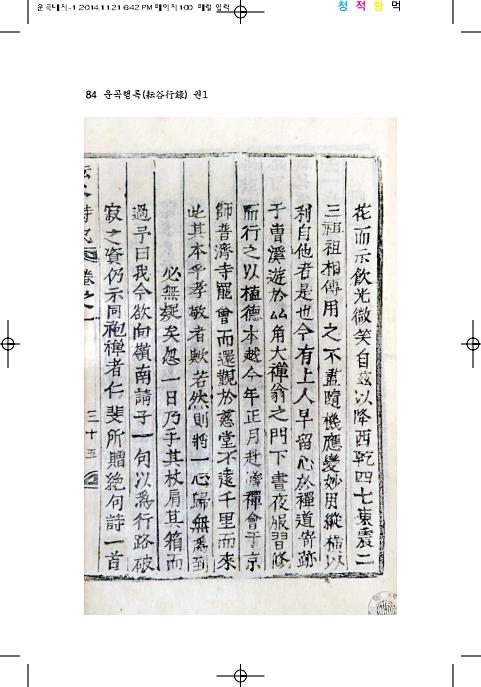 운곡대지-1 2014.11.21 6:42 PM 페이지100 매킨
청 적 황 먹
84 운곡행록(耘谷行錄) 권1
花而示飮光微笑自玆以降西乾四七東震二
三祖祖相傳用之不盡隨機應變妙用縱橫以
利自他者是也今有上人早留心於禪道寄跡
于曹溪遊於厶角大禪翁之門下晝夜服習修
而行之以植德本越今年正月赴禪會于京
師普濟寺罷會而還覲於慈堂不遠千里而來
此其本乎孝敬者歟若然則將一心歸無爲到
必無疑矣忽一日乃手其杖肩其箱而
過予曰我今欲向嶺南請子一句以爲行路破
寂之資仍示同袍禪者仁斐所贈絶句詩一首
詩史 卷之一 三十五